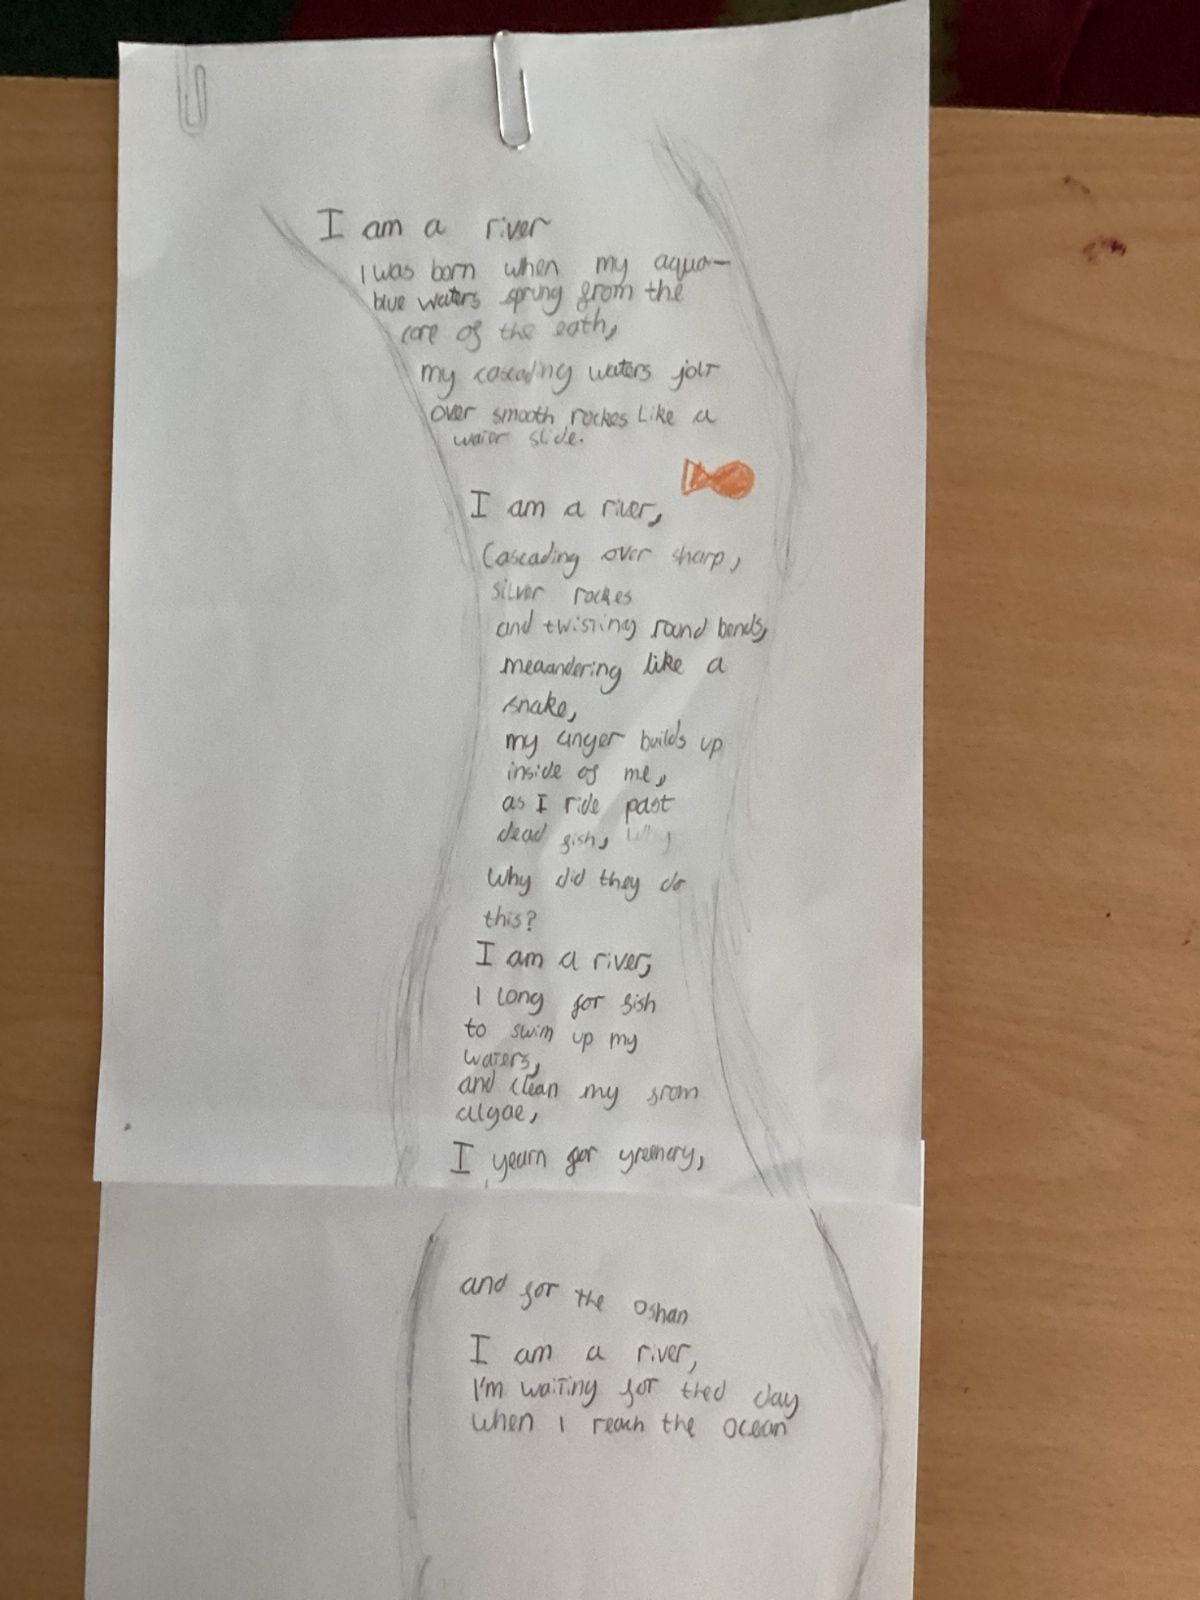 I am a river
I was born when my aqua-
blue waters spring from the
core of the eath,
my cascading waters jolt
over smooth rockes like a
water slide.
I am a river,
Cascading over sharp,
silver rockes
and twisting round bends,
meaandering like a
snake,
my anger builds up
inside of me,
as I ride past
dead fish, Why
Why did they do
this?
I am a river,
I long for fish
to swim up my
waters,
and clean my from
algae,
I yearn for greenery,
and for the oshan
I am a river,
I'm waiting for thed day
when I reach the ocean